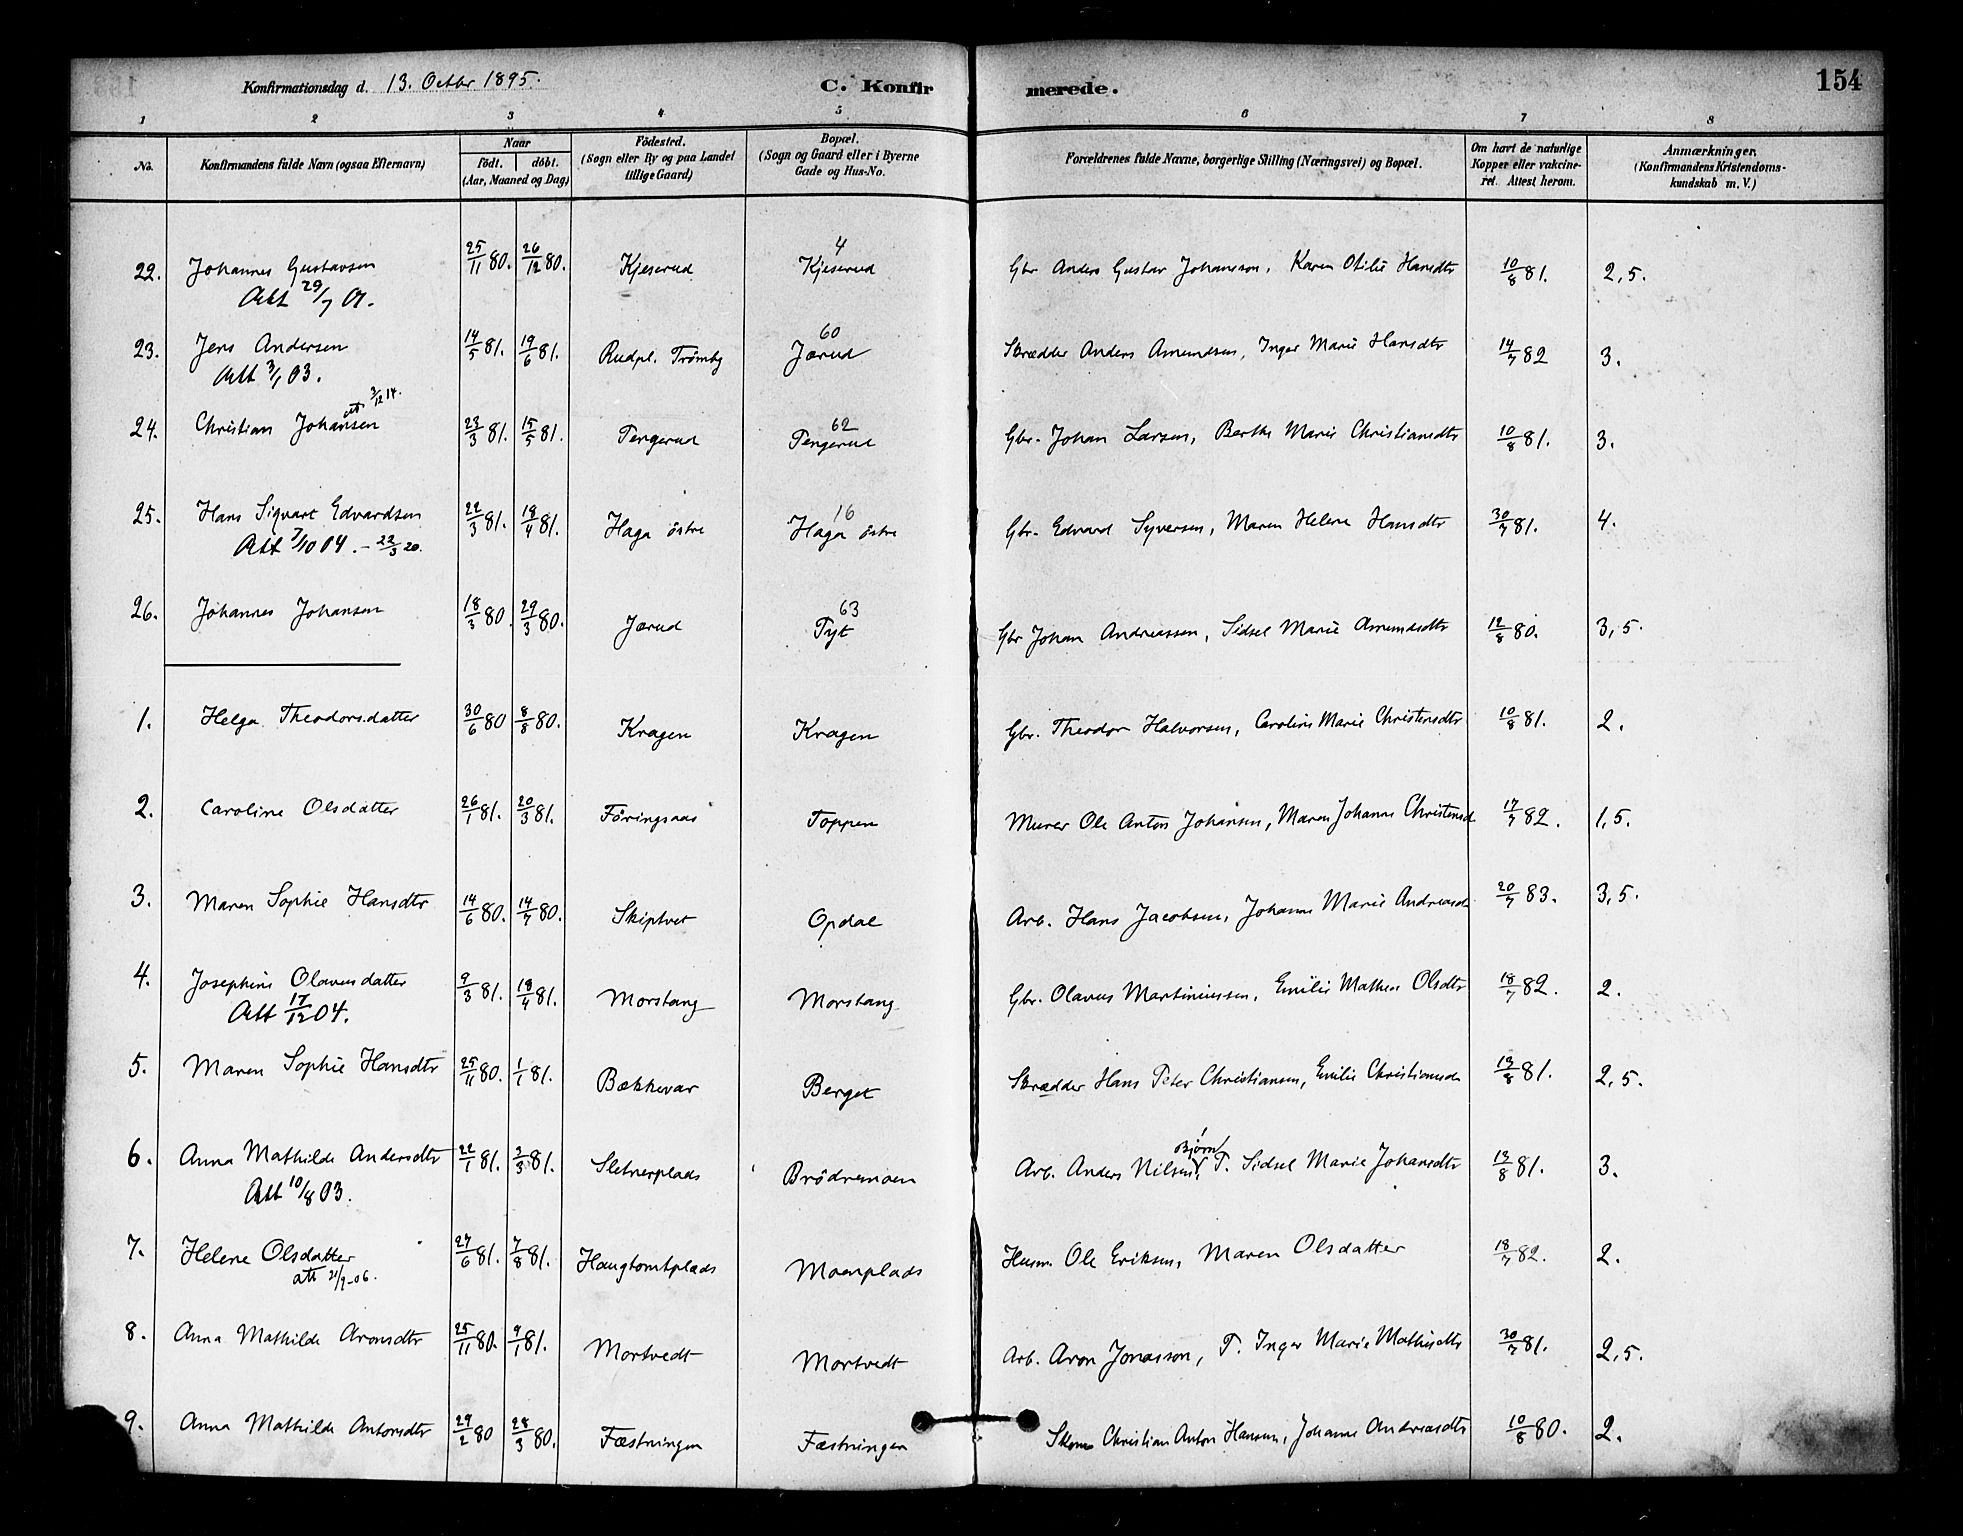 Konfirmationsdag d. 13. Octbr 1895.
C. Konfirmerede.
154
1 2 3 4 5 6 7 8
No. Konfirmandens fulde Navn (ogsaa Efternavn) Naar födt. döbt. (Aar, Maaned og Dag) Födested. (Sogn eller By og paa Landet tillige Gaard) Bopæl. (Sogn og Gaard eller i Byerne Gade og Hus-No. Forældrenes fulde Navne, borgerlige Stilling (Næringsvei) og Bopæl. Om havt de naturlige Kopper eller vakcineret. Attest herom. Anmærkninger. (Konfirmandens Kristendomskundskab m. V.)
22. Johannes Gustavsen 25/11 80. 26/12 80. Kjeserud 4 Kjeserud Gbr Anders Gustav Johansson, Karen Otilie Hansdtr 10/8 81. 2,5.
Att 29/7 01.
23. Jens Andersen 14/5 81. 19/6 81. Rudpl. Trømby 60 Jærud Skrædder Anders Amundsen, Inger Marie Hansdtr 14/7 82 3.
Att 3/1 03.
24. Christian Johansen att. 3/12 14. 23/3 81. 15/5 81. Tengerud 62 Tengerud Gbr. Johan Larsen, Berthe Marie Christiansdtr 10/8 81. 3.
25. Hans Sigvart Edvardsen 22/3 81. 18/4 81. Haga östre 16 Haga östre Gbr. Edvard Syversen, Maren Helene Hansdtr 30/7 81. 4.
Att 7/10 04. – 22/3 20.
26. Johannes Johansen 18/3 80. 29/3 80. Jærud 63 Tyt Gbr Johan Andreassen, Sidsel Marie Amundsdtr 12/8 80. 3,5.
1. Helga Theodorsdatter 30/6 80 8/8 80. Kragen Kragen Gbr. Theodor Halvorsen, Caroline Marie Christensdtr 10/8 81. 2.
2. Caroline Olsdatter 26/1 81. 20/3 81. Föringsaas Toppen Murer Ole Anton Johansen, Maren Johanne Christensd 17/7 82. 1,5.
3. Maren Sophie Hansdtr 14/6 80. 14/7 80. Skiptvet Opdal Arb. Hans Jacobsen, Johanne Marie Andreasd 20/7 83. 3,5.
4. Josephine Olavusdatter 9/3 81. 18/4 81. Morstang Morstang Gbr. Olavus Martiniussen, Emilie Mathea Olsdtr 18/7 82. 2.
Att 17/12 04.
5. Maren Sophie Hansdtr 25/11 80. 1/1 81. Bækkevar Berget Skrædder Hans Peter Christiansen, Emilie Christiansd 13/8 81. 2,5.
6. Anna Mathilde Andersdtr 22/1 81. 3/3 81. Sletnerplads Brödremoen Arb. Anders Nilsen Bjørn, T. Sidsel Marie Johansdtr 13/8 81. 3.
Att 10/8 03.
7. Helene Olsdatter 27/6 81. 7/8 81. Haugtomtplads Moenplads Husm. Ole Eriksen, Maren Olsdatter 18/7 82. 2.
att 21/9-06.
8. Anna Mathilde Aronsdtr 25/11 80. 9/1 81. Mortvedt Mortvedt Arb. Aron Jonasson, T. Inger Marie Mathisdtr 30/7 81. 2,5.
9. Anna Mathilde Antonsdtr 29/2 80 28/3 80. Fæstningen Fæstningen Skom Christian Anton Hansen, Johanne Andreasdtr 10/8 80. 2.